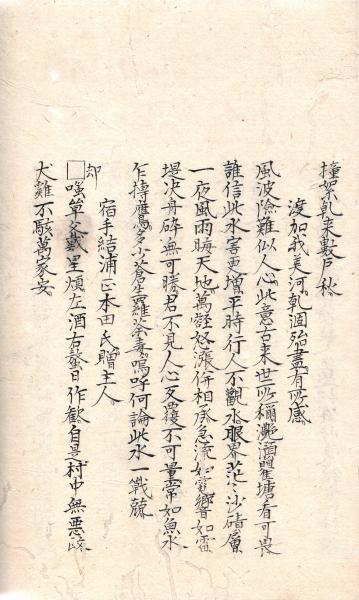 撞絮乾来數戸秋
渡加我美河乾涸殆盡有所感
風波險難似人心此意古来世所稱灔澦瞿塘看可畏
誰信此水害更增平時行人不觀水眼界茫々沙磧層
一夜風雨晦天地萬壑怒漲併相承急流如電響如雷
堤决舟碎無可勝君不見人心反覆不可量常如魚水
乍摶鷹多少蒼生羅荼毒嗚呼何論此水一戰兢
宿手結浦正木田氏贈主人
却
□嗤草文戴星煩左酒右螯日作歓自是村中無悪政
犬雞不駭萬家安